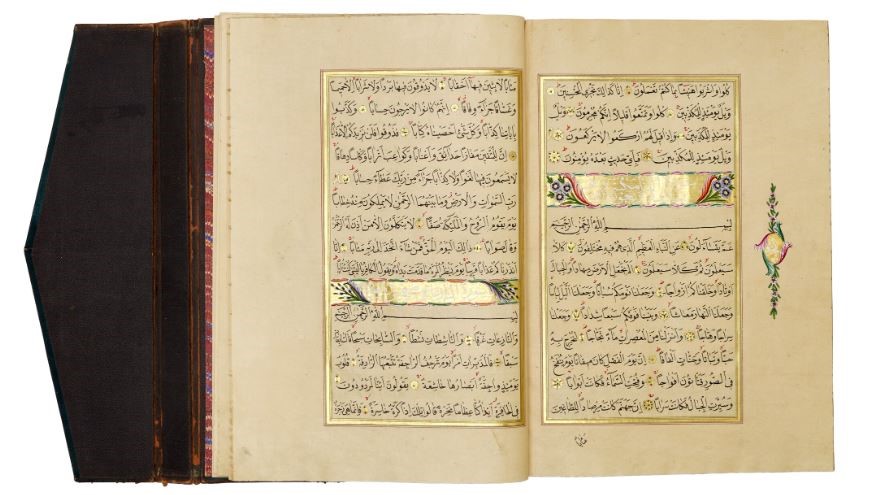 كلوا واشربوا هنيئا بما كنتم تعملون انا كذلك نجزي المحسنين
ويل يومئذ للمكذبين كلوا وتمتعوا قليلا انكم مجرمون ويل
يومئذ للمكذبين واذا قيل لهم اركعوا لا يركعون
ويل يومئذ للمكذبين فباي حديث بعده يؤمنون
بسم الله الرحمن الرحيم
عم يتساءلون عن النبأ العظيم الذي هم فيه مختلفون كلا
سيعلمون ثم كلا سيعلمون الم نجعل الارض مهادا والجبال
اوتادا وخلقناكم ازواجا وجعلنا نومكم سباتا وجعلنا الليل لباسا
وجعلنا النهار معاشا وبنينا فوقكم سبعا شدادا وجعلنا
سراجا وهاجا وانزلنا من المعصرات ماء ثجاجا لنخرج به
حبا ونباتا وجنات الفافا ان يوم الفصل كان ميقاتا يوم ينفخ
في الصور فتأتون افواجا وفتحت السماء فكانت ابوابا
وسيرت الجبال فكانت سرابا ان جهنم كانت مرصادا للطاغين
مآبا
مآبا لابثين فيها احقابا لا يذوقون فيها بردا ولا شرابا الا حميما
وغساقا جزاء وفاقا انهم كانوا لا يرجون حسابا وكذبوا
بآياتنا كذابا وكل شيء احصيناه كتابا فذوقوا فلن نزيدكم الا عذابا
ان للمتقين مفازا حدائق واعنابا وكواعب اترابا وكأسا دهاقا
لا يسمعون فيها لغوا ولا كذابا جزاء من ربك عطاء حسابا
رب السموات والارض وما بينهما الرحمن لا يملكون منه خطابا
يوم يقوم الروح والملئكة صفا لا يتكلمون الا من اذن له الرحمن
وقال صوابا ذلك اليوم الحق فمن شاء اتخذ الى ربه مآبا انا
انذرناكم عذابا قريبا يوم ينظر المرء ما قدمت يداه ويقول الكافر يا ليتني كنت ترابا
بسم الله الرحمن الرحيم
والنازعات غرقا والناشطات نشطا والسابحات سبحا فالسابقات
سبقا فالمدبرات امرا يوم ترجف الراجفة تتبعها الرادفة قلوب
يومئذ واجفة ابصارها خاشعة يقولون ائنا لمردودون
في الحافرة ائذا كنا عظاما نخرة قالوا تلك اذا كرة خاسرة فانما هي زجرة